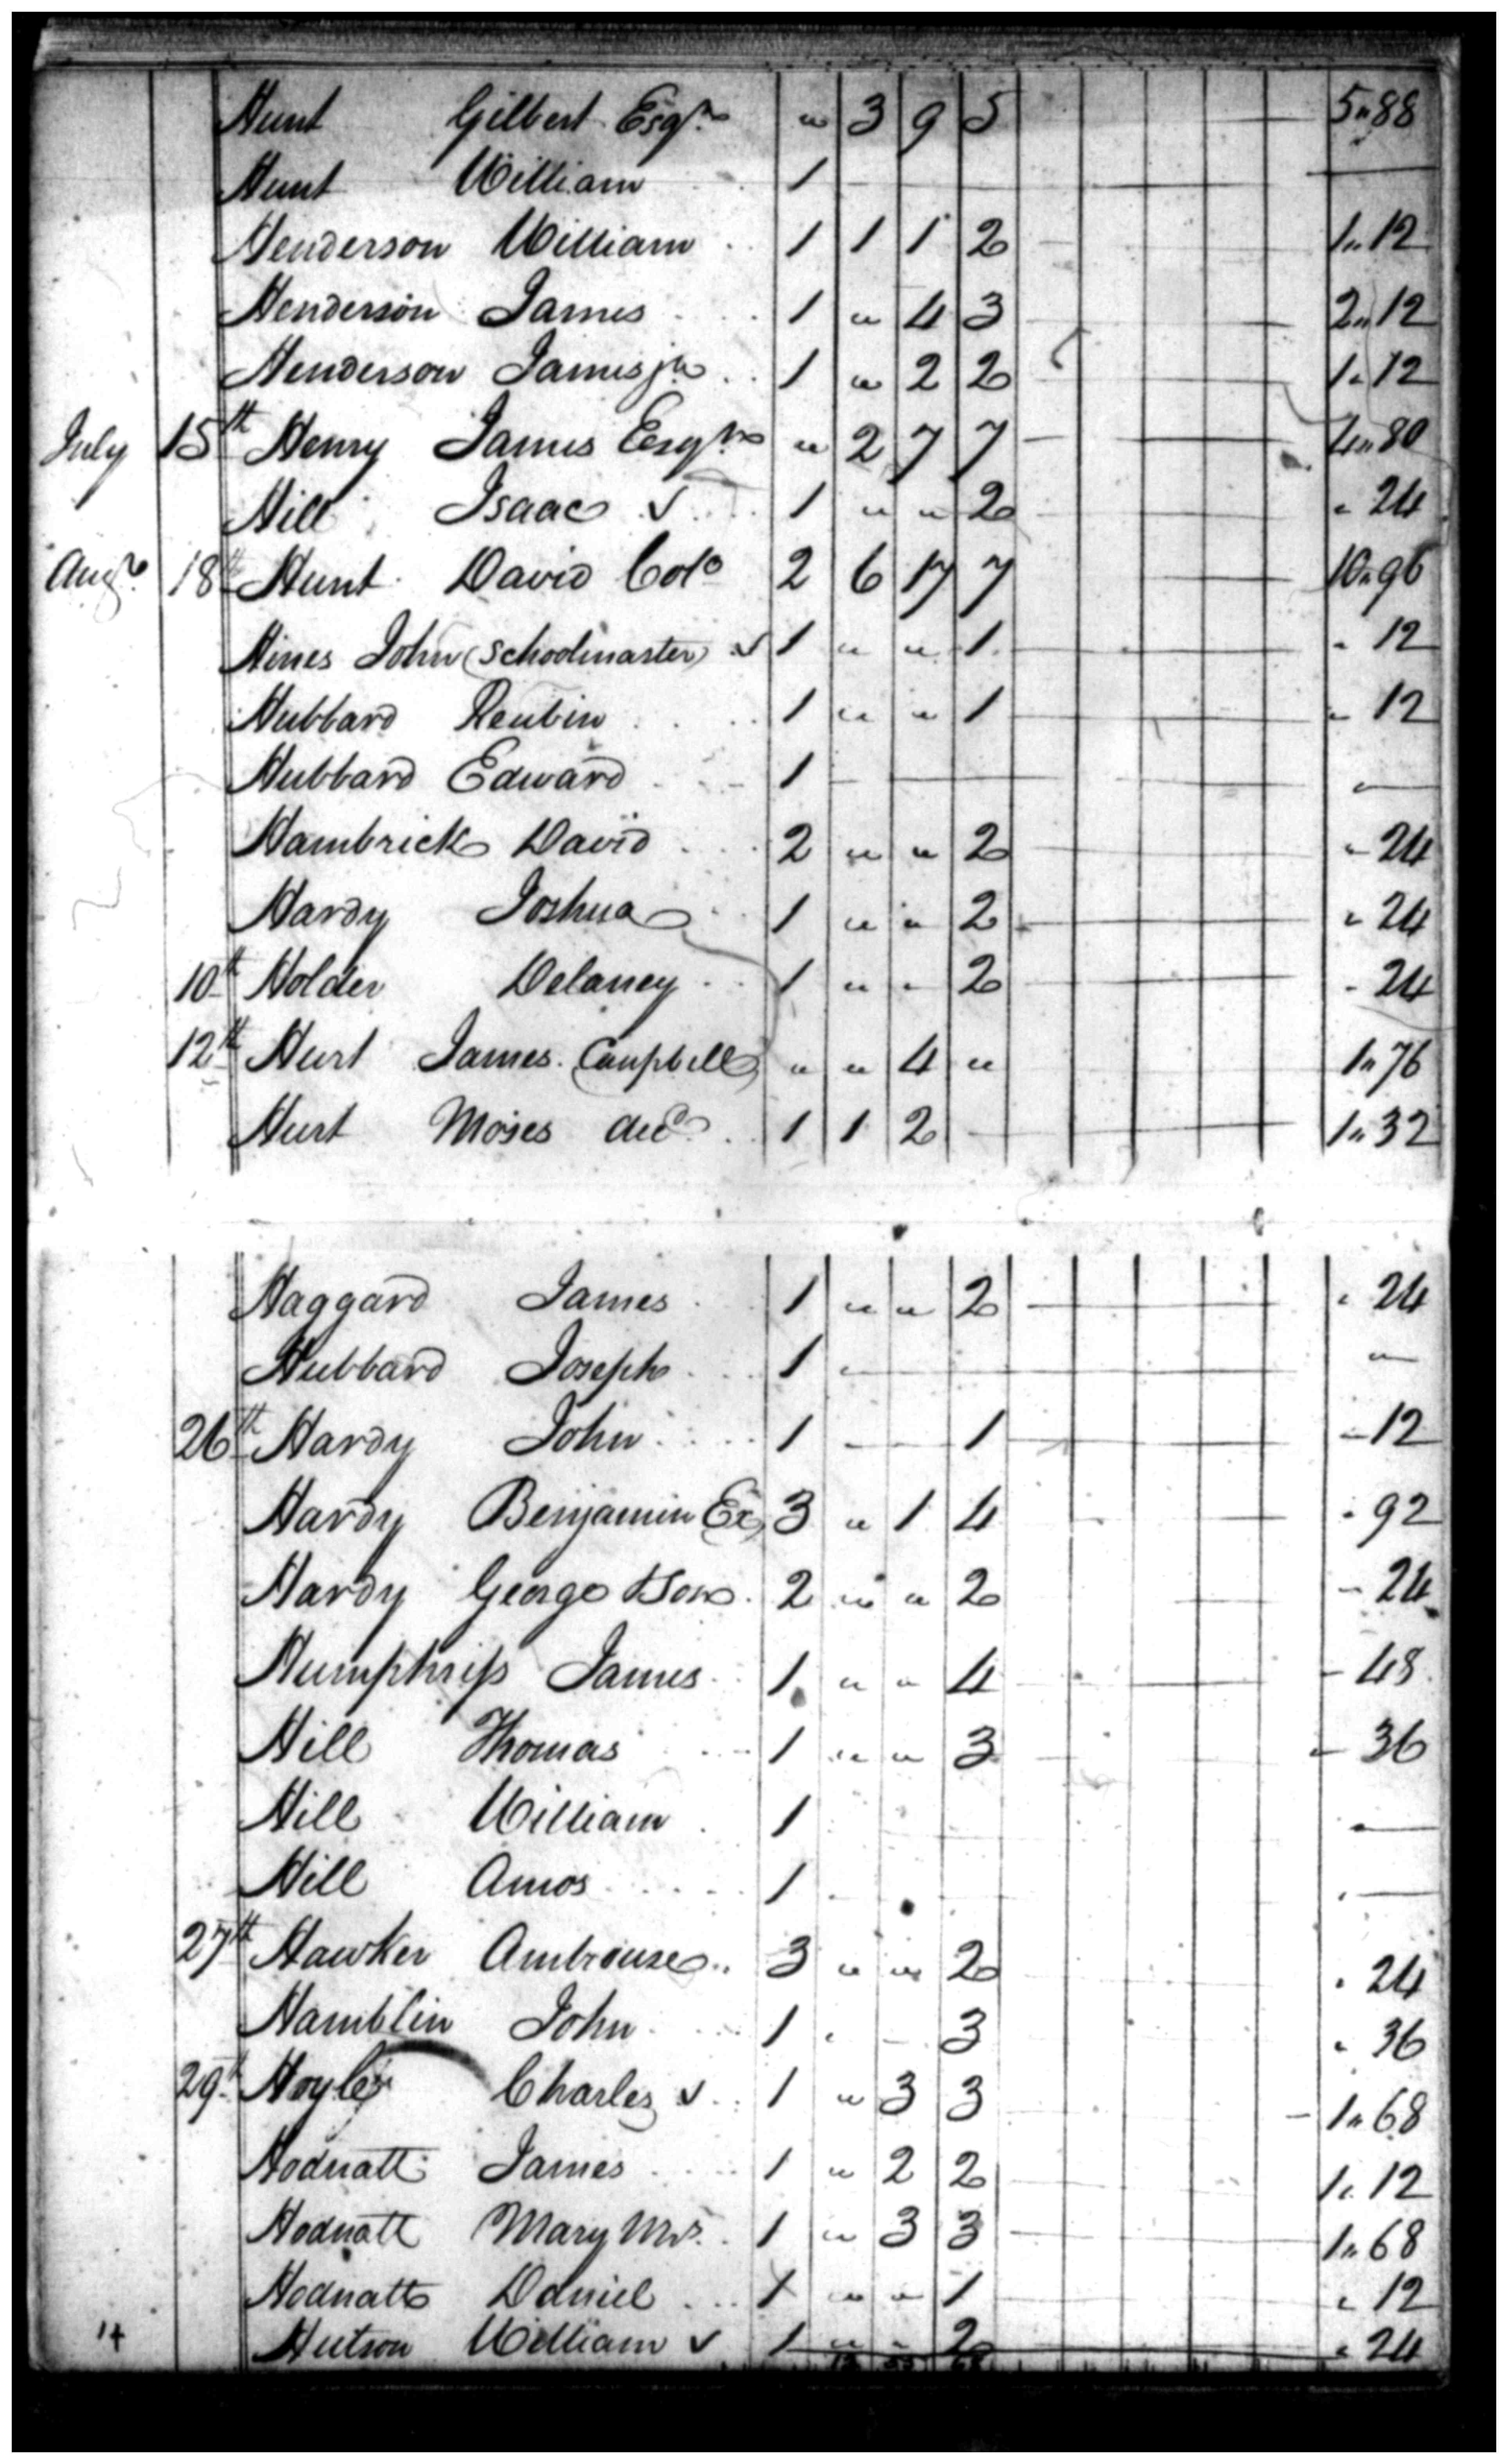 Hunt Gilbert Esqr " 3 9 5 5"88
Hunt William 1 —
Henderson William 1 1 1 2 1"12
Henderson James 1 " 4 3 2"12
Henderson James jr 1 " 2 2 1"12
July 15th Henry James Esqr " 2 7 7 4"80
Hill Isaac v 1 " " 2 " 24
Augt 18th Hunt David Colo 2 6 17 7 10"96
Hines John (Schoolmaster) v 1 " " 1 " 12
Hubbard Reubin 1 " " 1 " 12
Hubbard Edward 1 —
Hambrick David 2 " " 2 " 24
Hardy Joshua 1 " " 2 " 24
10th Holder Delaney 1 " " 2 " 24
12th Hurt James (Campbell) " " 4 " 1"76
Hurt Moses decd 1 1 2 — 1"32
Haggard James 1 " " 2 " 24
Hubbard Joseph 1 — "
26th Hardy John 1 — 1 " 12
Hardy Benjamin Ex 3 " 1 4 " 92
Hardy George & Son 2 " " 2 " 24
Humphriss James 1 " " 4 " 48
Hill Thomas 1 " " 3 " 36
Hill William 1 —
Hill Amos 1 —
27th Hawker Ambrouse 3 " " 2 " 24
Hamblin John 1 " " 3 " 36
29th Hoyle Charles v 1 " 3 3 1"68
Hodnatt James 1 " 2 2 1"12
Hodnatt Mary Mrs 1 " 3 3 1"68
Hodnatt Daniel 1 " " 1 " 12
14 Hutson William v 1 " " 2 " 24